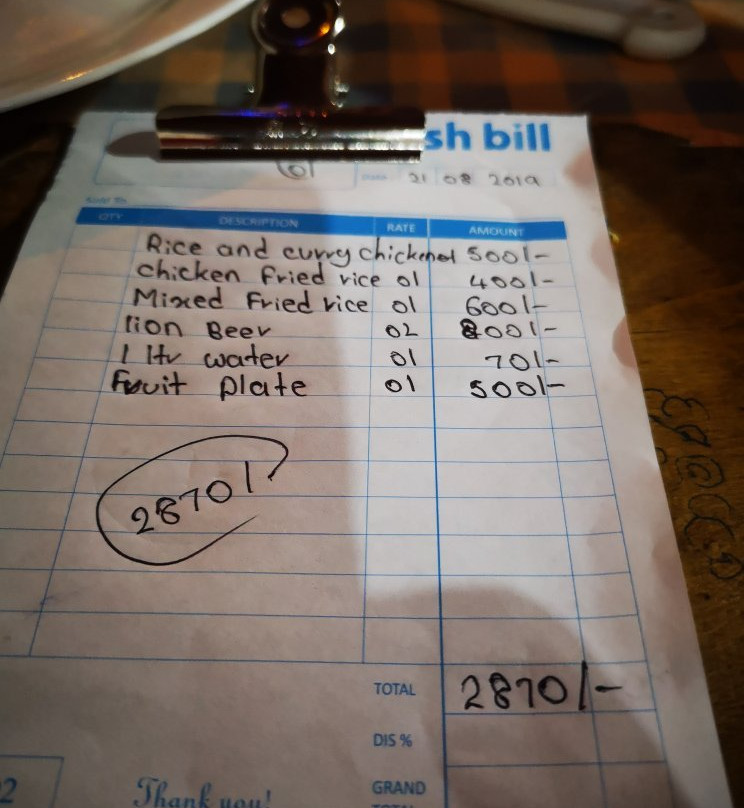 sh bill
101
Date 21 08 2019
QTY DESCRIPTION RATE AMOUNT
Rice and curry chicken 01 500/-
chicken fried rice 01 400/-
Mixed Fried rice 01 600/-
lion Beer 02 800/-
1 ltr water 01 70/-
Fruit plate 01 500/-
2870/-
TOTAL 2870/-
DIS %
GRAND
TOTAL
Thank you!